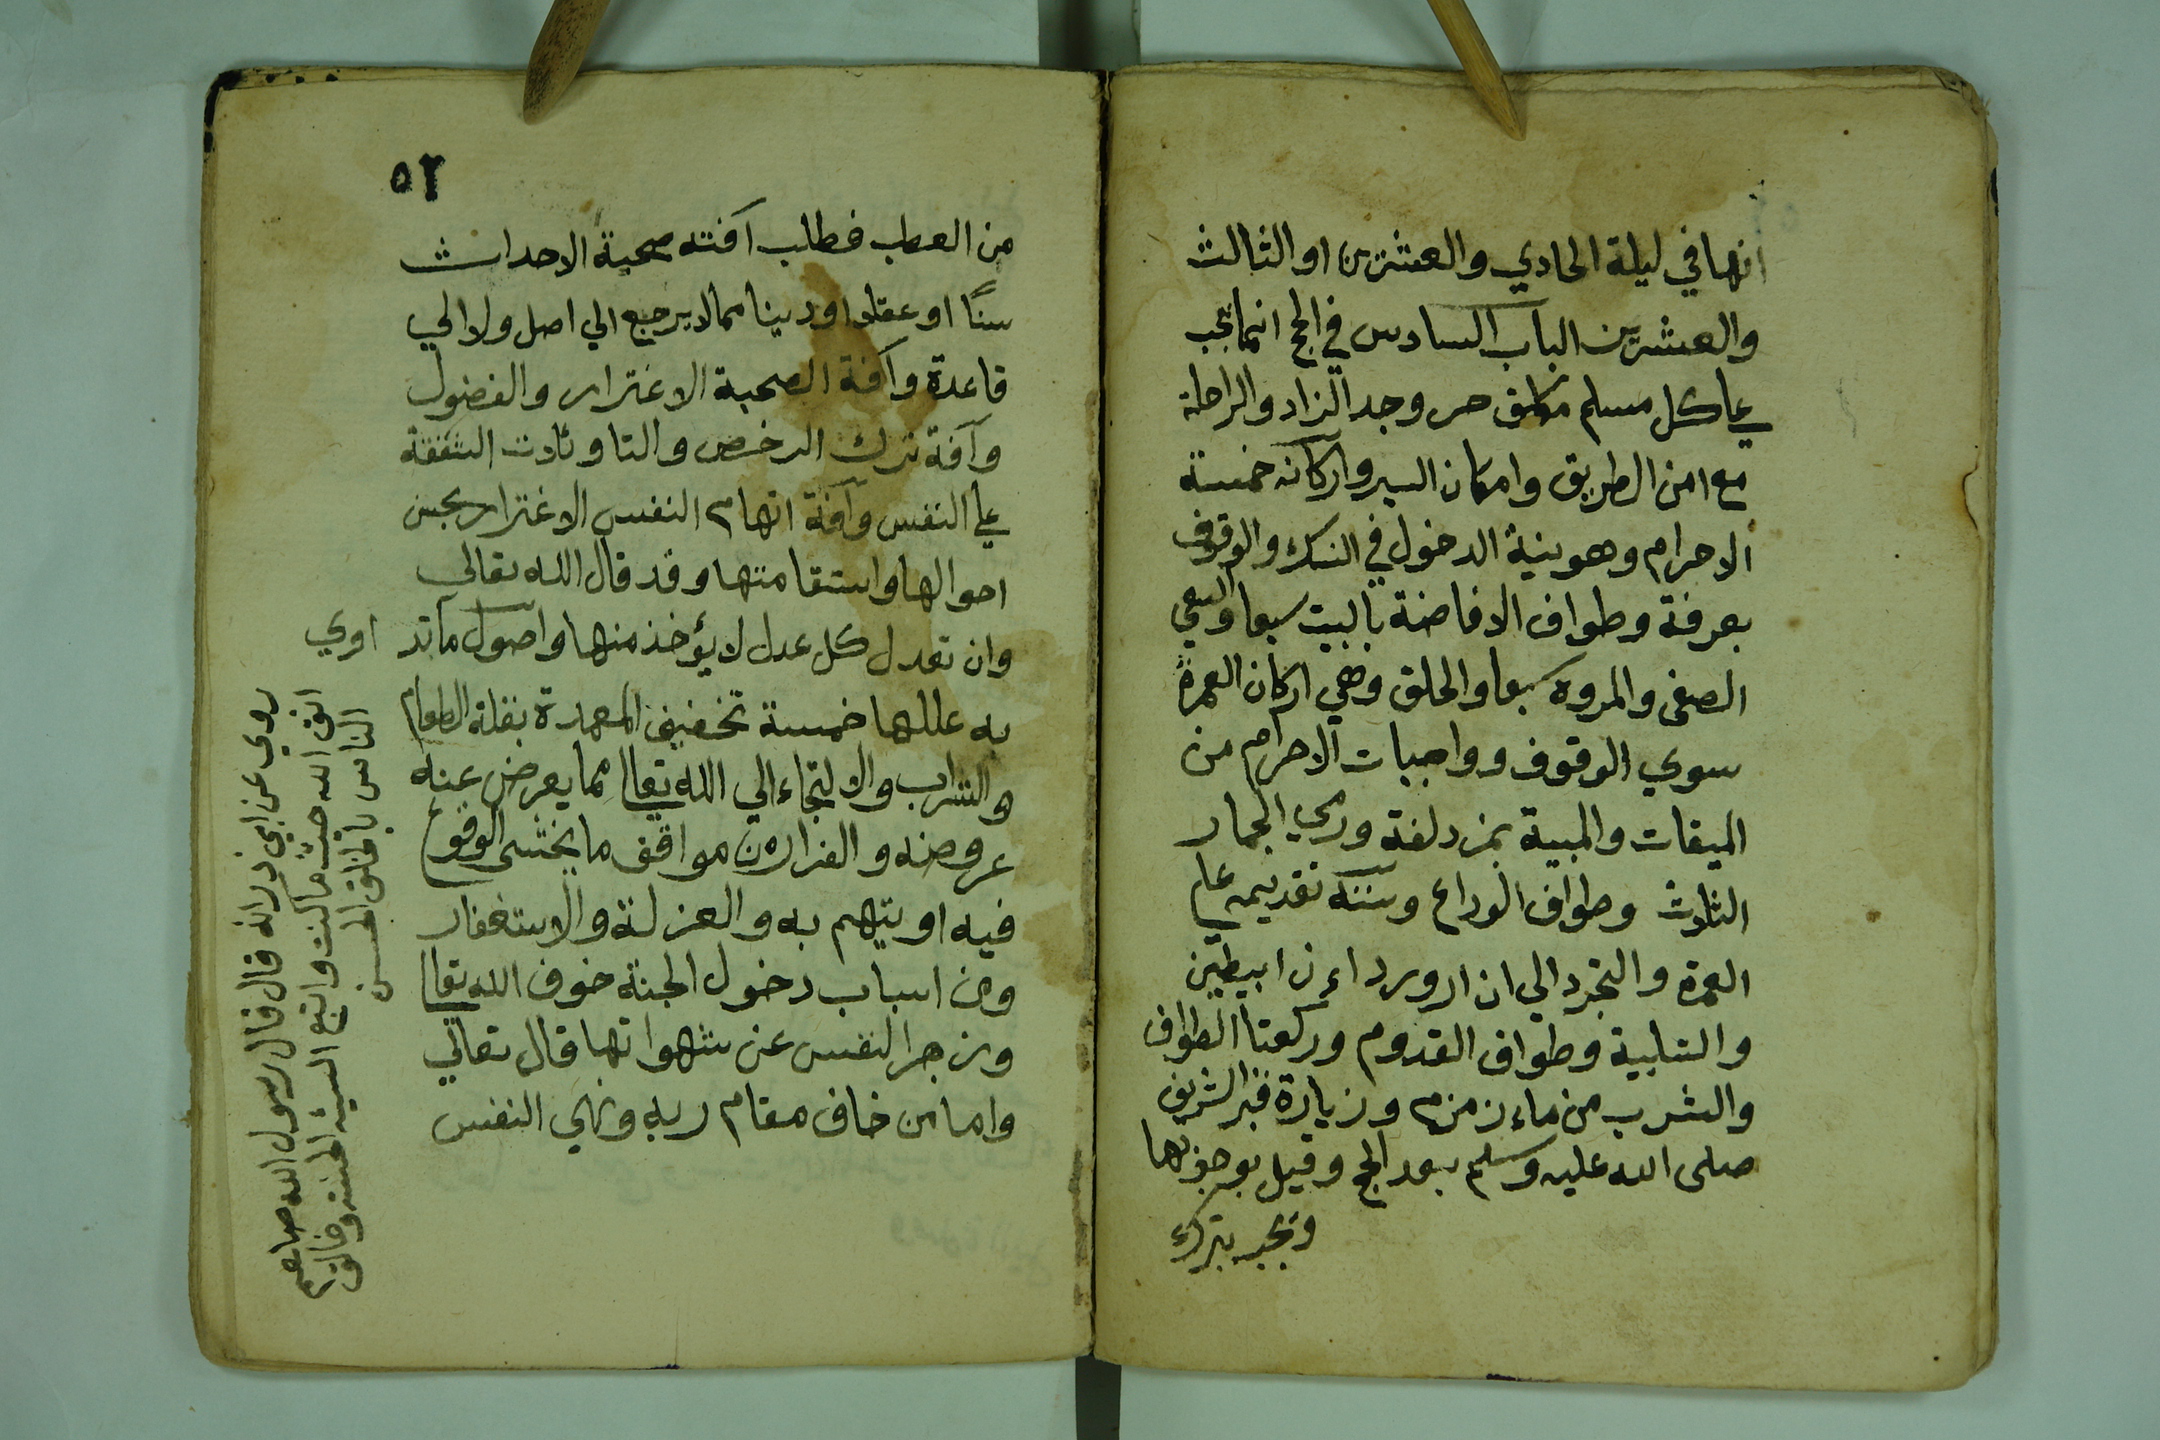 انها في ليلة الحادي والعشرين او الثالث
والعشرين الباب السادس في الحج انما يجب
على كل مسلم مكلف حر وجد الزاد والراحلة
مع امن الطريق وامكان السير واركانه خمسة
الاحرام وهو نية الدخول في النسك والوقوف
بعرفة وطواف الافاضة بالبيت سبعا والسعي
الصفى والمروه سبعا والحلق وهي اركان العمرة
سوي الوقوف وواجبات الاحرام من
الميقات والمبية بمزدلفة ورمي الجمار
الثلاث وطواف الوداع وسننه تقديمه على
العمرة والتجرد الي ازار ورداءن ابيضين
والتلبية وطواف القدوم وركعتا الطواف
والشرب من ماء زمزم وزيارة قبر الشريف
صلى الله عليه وسلم بعد الحج وقيل بوجوبها
وتجبر بترك
٥٢
من العطب فطلب آفته صحبة الاحداث
سنًا او عقلا او دينا مما لا يرجع الي اصل ولا الي
قاعدة وآفة الصحبة الاغترار والفضول
وآفة ترك الرخص والتاويلات الشفقة
على النفس وآفة اتهام النفس الاغترار بحسن
احوالها واستقامتها وقد قال الله تعالي
وان تعدل كل عدل لا يؤخذ منها واصول ما تد اوي
به عللها خمسة تخفيف المعدة بقلة الطعام
والشراب والالتجاء الي الله تعالى مما يعرض عنه
عروضه والفرار من مواقف ما يخشى الوقوع
فيه او يتهم به والعزلة والاستغفار
ومن اسباب دخول الجنة خوف الله تعالى
وزجر النفس عن شهواتها قال تعالي
واما من خاف مقام ربه ونهي النفس
روي عن ابي ذر انه قال قال رسول الله صلعم
اتق الله حيث ما كنت واتبع السيئه الحسنه وخالق
الناس باخلق الحسن